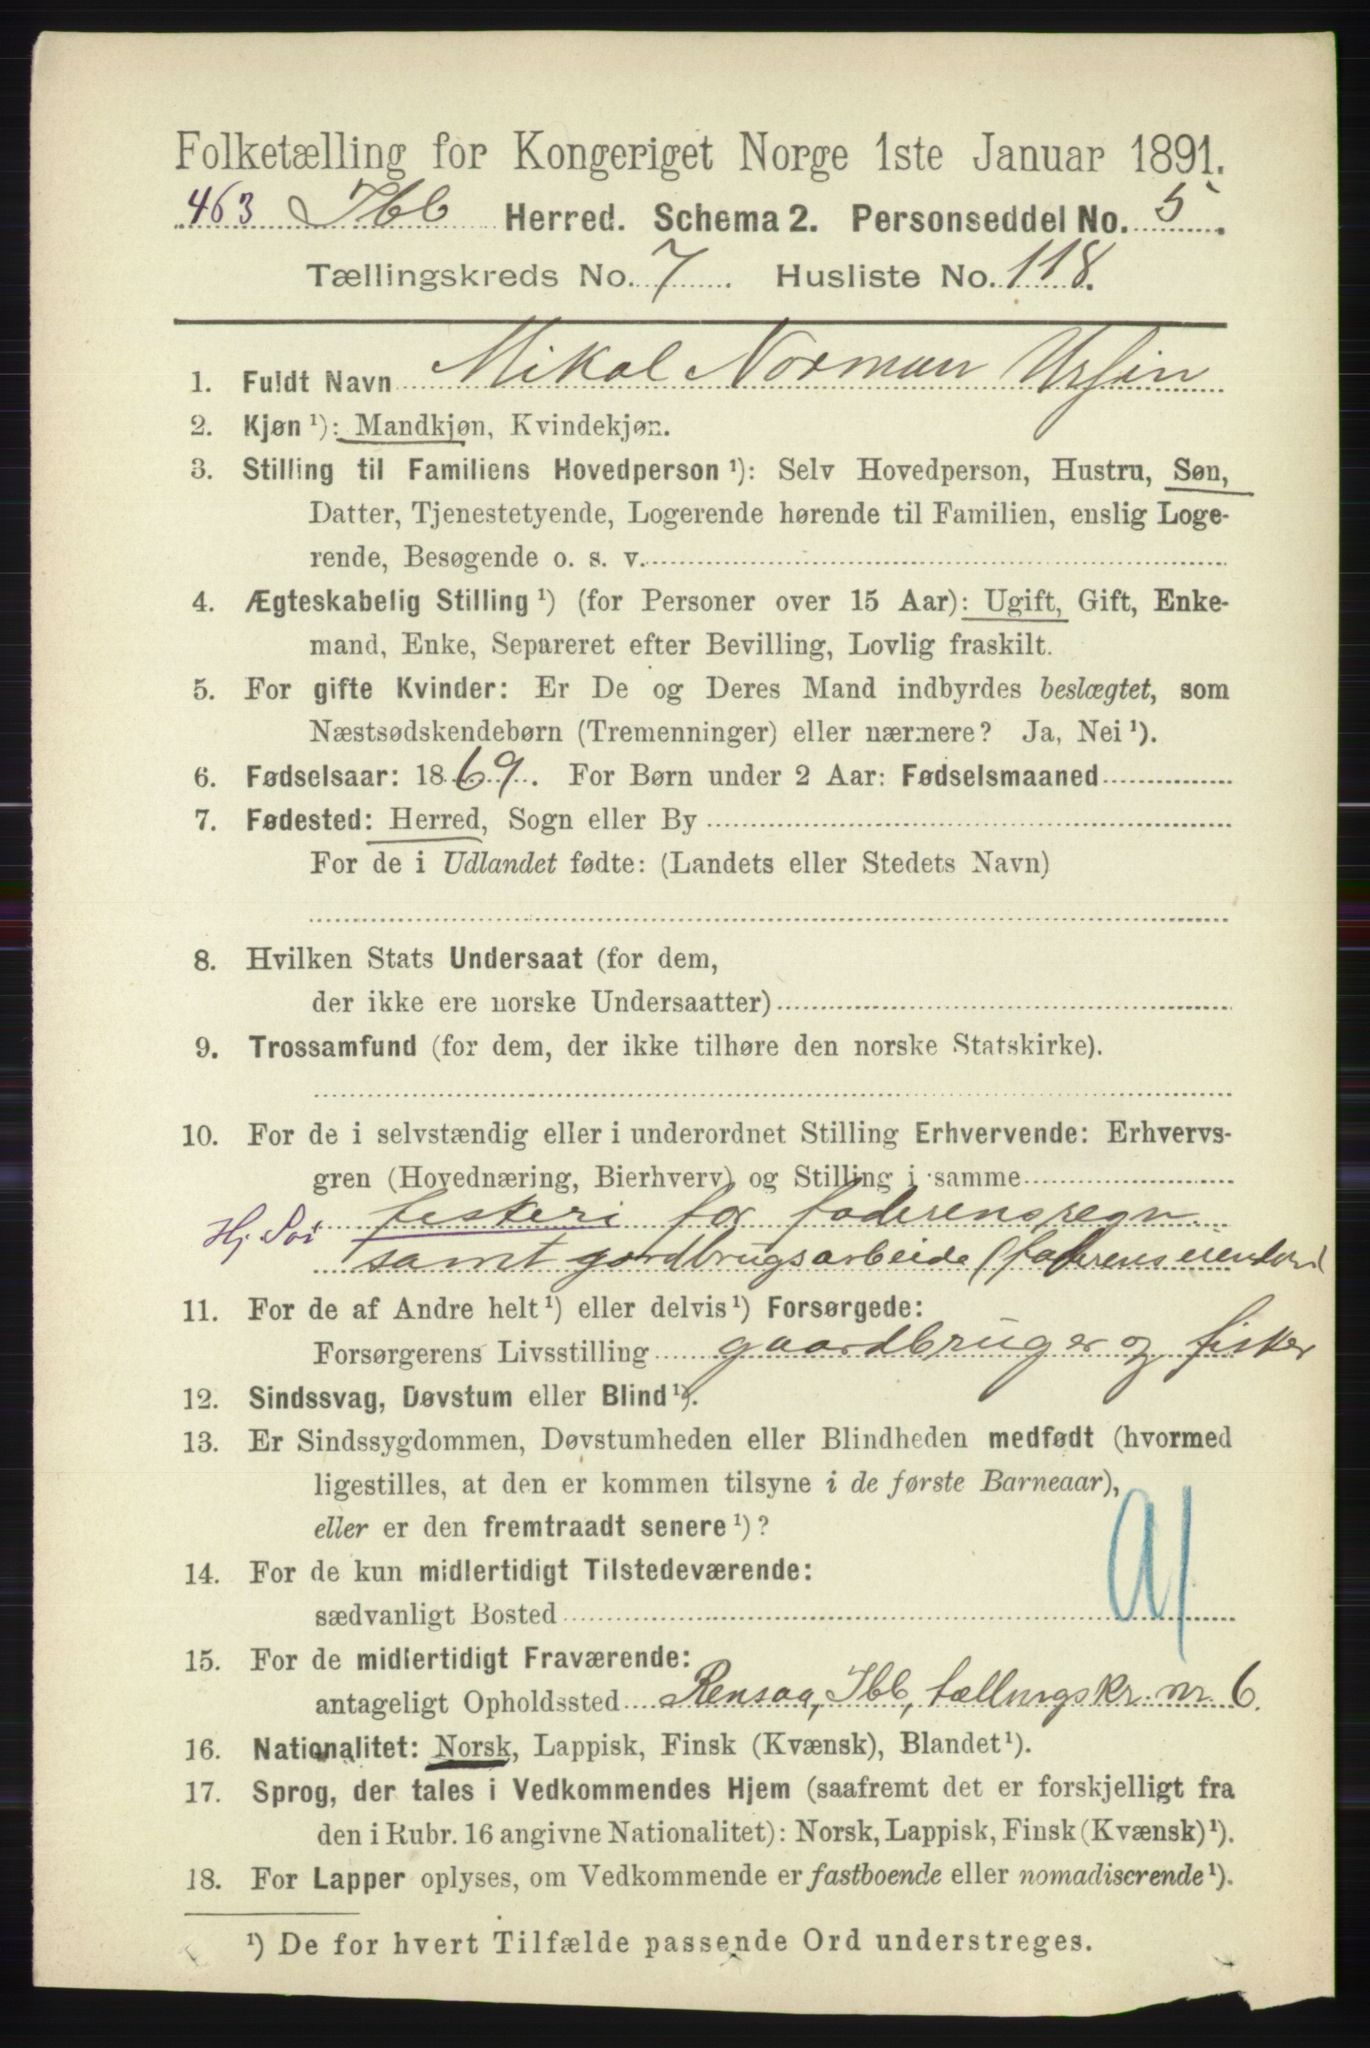 Folketælling for Kongeriget Norge 1ste Januar 1891.
463 Ibb Herred. Schema 2. Personseddel No. 5.
Tællingskreds No. 7. Husliste No. 118.
1. Fuldt Navn Mikal Norman Ursin
2. Kjøn ¹): Mandkjøn, Kvindekjøn.
3. Stilling til Familiens Hovedperson ¹): Selv Hovedperson, Hustru, Søn,
Datter, Tjenestetyende, Logerende hørende til Familien, enslig Loge-
rende, Besøgende o. s. v.
4. Ægteskabelig Stilling ¹) (for Personer over 15 Aar): Ugift, Gift, Enke-
mand, Enke, Separeret efter Bevilling, Lovlig fraskilt.
5. For gifte Kvinder: Er De og Deres Mand indbyrdes beslægtet, som
Næstsødskendebørn (Tremenninger) eller nærmere? Ja, Nei ¹).
6. Fødselsaar: 1869. For Børn under 2 Aar: Fødselsmaaned
7. Fødested: Herred, Sogn eller By
For de i Udlandet fødte: (Landets eller Stedets Navn)
8. Hvilken Stats Undersaat (for dem,
der ikke ere norske Undersaatter)
9. Trossamfund (for dem, der ikke tilhøre den norske Statskirke).
10. For de i selvstændig eller i underordnet Stilling Erhvervende: Erhvervs-
gren (Hovednæring, Bierhverv) og Stilling i samme
Hj. fiskeri for faderens regn.
samt gardbrugsarbeide (faderens eiendom
11. For de af Andre helt ¹) eller delvis ¹) Forsørgede:
Forsørgerens Livsstilling gaardbruger og fisker
12. Sindssvag, Døvstum eller Blind ¹).
13. Er Sindssygdommen, Døvstumheden eller Blindheden medfødt (hvormed
ligestilles, at den er kommen tilsyne i de første Barneaar),
eller er den fremtraadt senere ¹)?
14. For de kun midlertidigt Tilstedeværende:
sædvanligt Bosted
15. For de midlertidigt Fraværende:
antageligt Opholdssted Rensaa, Ibb, tællingskr. nr. 6.
16. Nationalitet: Norsk, Lappisk, Finsk (Kvænsk), Blandet ¹).
17. Sprog, der tales i Vedkommendes Hjem (saafremt det er forskjelligt fra
den i Rubr. 16 angivne Nationalitet): Norsk, Lappisk, Finsk (Kvænsk) ¹).
18. For Lapper oplyses, om Vedkommende er fastboende eller nomadiserende ¹).
¹) De for hvert Tilfælde passende Ord understreges.